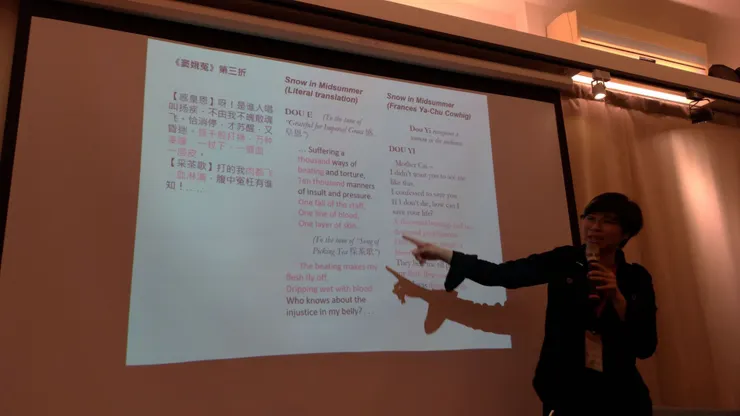 《竇娥冤》第三折
【感皇恩】呀！是誰人唱
叫揚疾，不由我不魄散魂
飛。恰消停，才蘇醒，又
昏迷。捱千般打拷，萬種
凌逼，一杖下，一道血，
一層皮。
【采茶歌】打的我肉都飛，
血淋漓，腹中冤枉有誰
知！……
Snow in Midsummer
(Literal translation)
DOU E (To the tune of
"Grateful for Imperial Grace 感
皇恩")
… Suffering a
thousand ways of
beating and torture,
Ten thousand manners
of insult and pressure.
One fall of the staff,
One line of blood,
One layer of skin.
(To the tune of "Song of
Picking Tea 採茶歌")
The beating makes my
flesh fly off,
Dripping wet with blood.
Who knows about the
injustice in my belly? …
Snow in Midsummer
(Frances Ya-Chu Cowhig)
Dou Yi
woman in the audience.
DOU YI
Mother Cai –
I didn't want you to see me
like this.
I confessed to save you.
If I don't die, how can I
save your life?